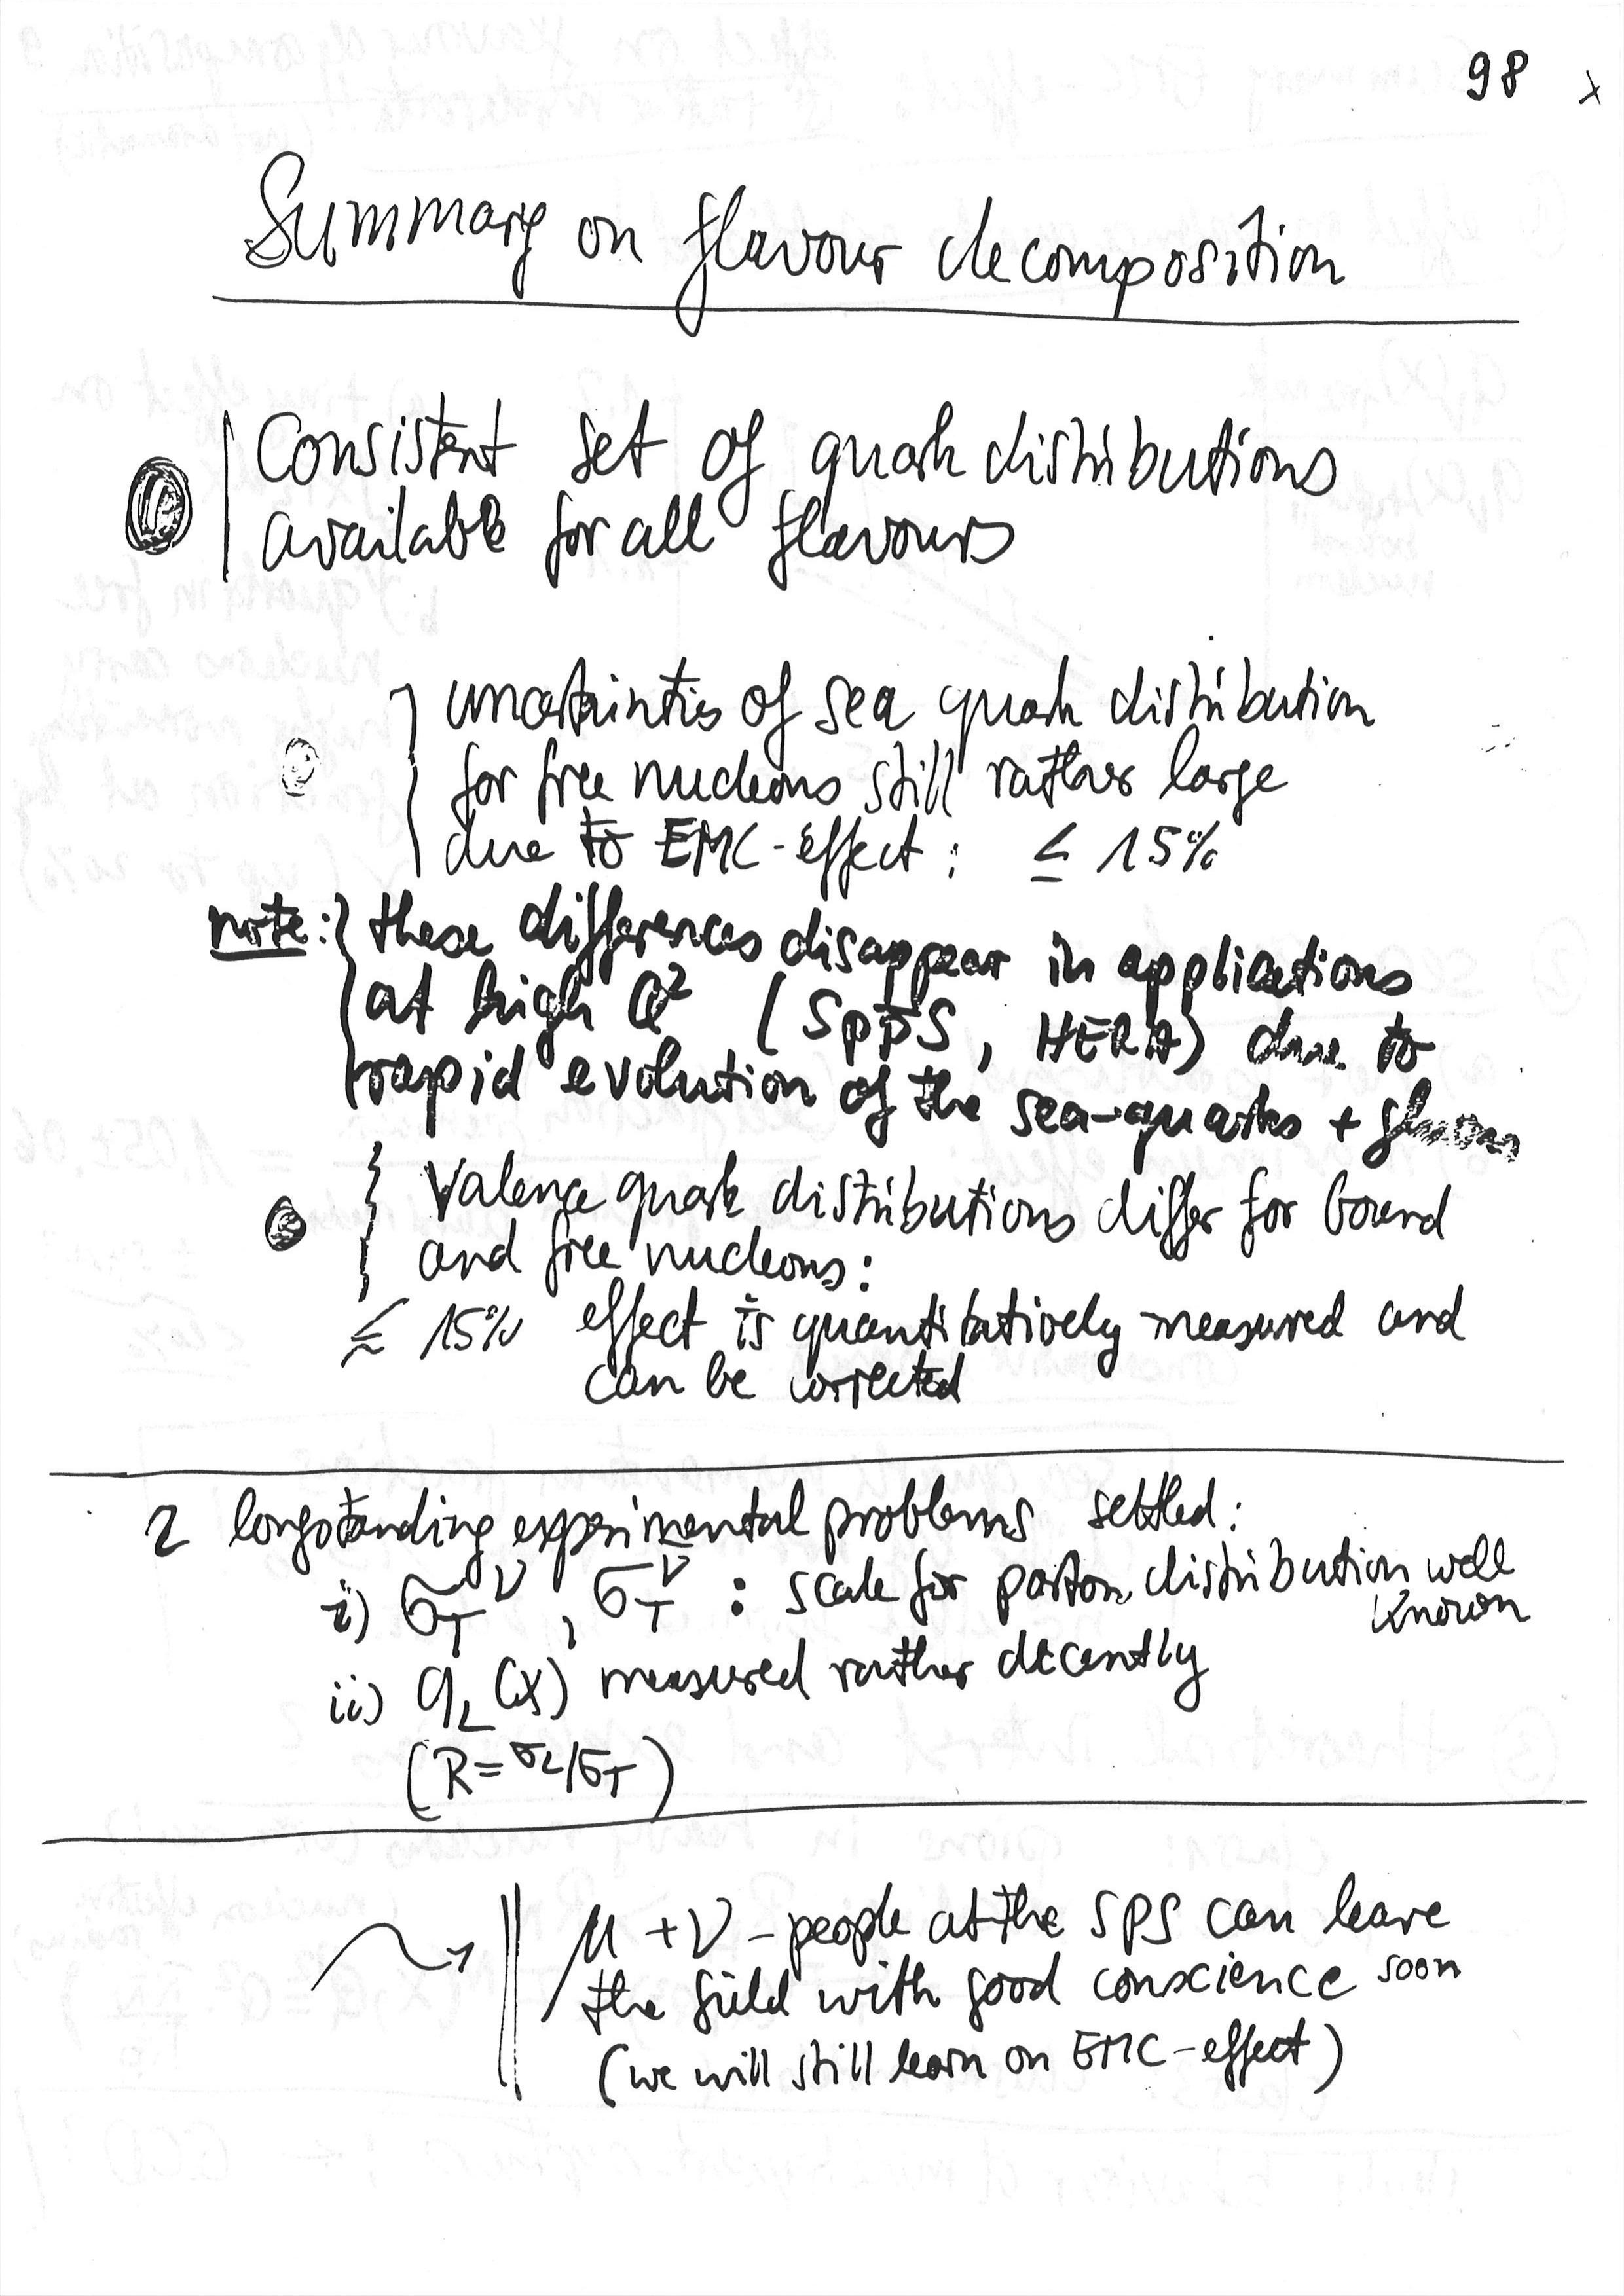 98 x
Summary on flavour decomposition
Consistent set of quark distributions
available for all flavours
uncertainties of sea quark distribution
for free nucleons still rather large
due to EMC-effect : ≤ 15%
note: these differences disappear in applications
at high Q² (Spp̄S, HERA) due to
rapid evolution of the sea-quarks + gluons
Valence quark distributions differ for bound
and free nucleons:
≤ 15% effect is quantitatively measured and
can be corrected
2 longstanding experimental problems settled:
i) σ_T^ν , σ_T^ν̄ : scale for parton distribution well
known
ii) q_L(x) measured rather decently
(R = σ_L/σ_T)
μ + ν - people at the SPS can leave
the field with good conscience soon
(we will still learn on EMC-effect)